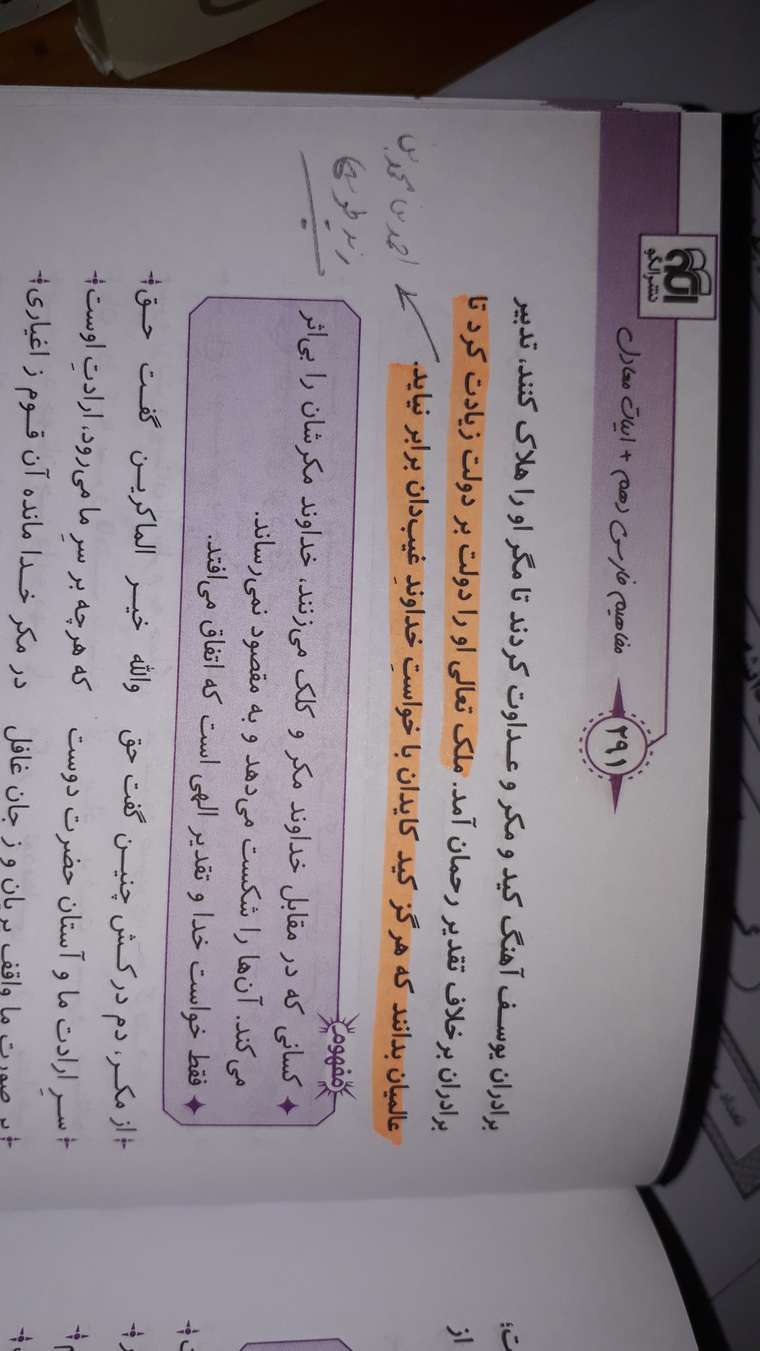 نشر الگو
مفاهیم فارسی دهم + ابیات معادل
۲۹۱
برادران یوسف آهنگ کید و مکر و عداوت کردند تا مگر او را هلاک کنند، تدبیر
برادران برخلاف تقدیر رحمان آمد. ملک تعالی او را دولت بر دولت زیادت کرد تا
عالمیان بدانند که هرگز کید کایدان با خواستِ خداوندِ غیب‌دان برابر نیاید.
احمد بن محمد بن
زید طوسی
مفهوم
✦ کسانی که در مقابل خداوند مکر و کلک می‌زنند، خداوند مکرشان را بی‌اثر
می‌کند. آن‌ها را شکست می‌دهد و به مقصود نمی‌رساند.
✦ فقط خواست خدا و تقدیر الهی است که اتفاق می‌افتد.
از مکر، دم درکش چنین گفت حق والله خیر الماکرین گفت حق
سرِ ارادت ما و آستان حضرت دوست که هرچه بر سرِ ما می‌رود، ارادتِ اوست
بر صورت ما واقف بریان و ز جان غافل در مکر خدا مانده آن قوم ز اغیاری
ت؛
از